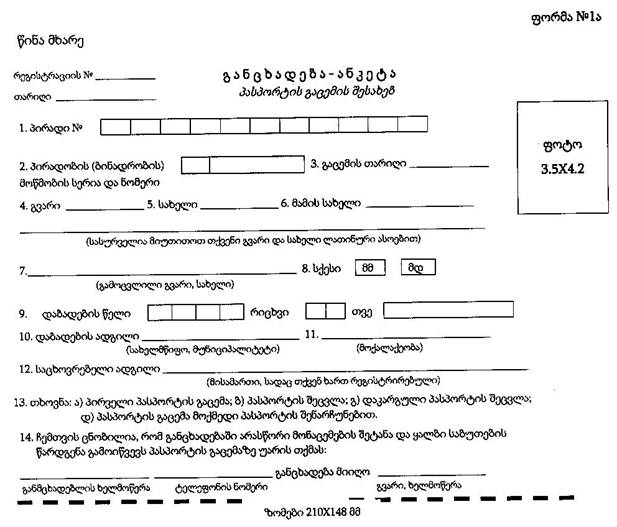 ფორმა №1ა
წინა მხარე
რეგისტრაციის №
განცხადება-ანკეტა
თარიღი
პასპორტის გაცემის შესახებ
1. პირადი №
ფოტო
3.5X4.2
2. პირადობის (ბინადრობის) 3. გაცემის თარიღი
მოწმობის სერია და ნომერი
4. გვარი 5. სახელი 6. მამის სახელი
(სასურველია მიუთითოთ თქვენი გვარი და სახელი ლათინური ასოებით)
7. 8. სქესი მმ მდ
(გამოცვლილი გვარი, სახელი)
9. დაბადების წელი რიცხვი თვე
10. დაბადების ადგილი 11.
(სახელმწიფო, მუნიციპალიტეტი) (მოქალაქეობა)
12. საცხოვრებელი ადგილი
(მისამართი, სადაც თქვენ ხართ რეგისტრირებული)
13. თხოვნა: ა) პირველი პასპორტის გაცემა; ბ) პასპორტის შეცვლა; გ) დაკარგული პასპორტის შეცვლა;
დ) პასპორტის გაცემა მოქმედი პასპორტის შენარჩუნებით.
14. ჩემთვის ცნობილია, რომ განცხადებაში არასწორი მონაცემების შეტანა და ყალბი საბუთების
წარდგენა გამოიწვევს პასპორტის გაცემაზე უარის თქმას:
განცხადება მიიღო
განმცხადებლის ხელმოწერა ტელეფონის ნომერი გვარი, ხელმოწერა
ზომები 210X148 მმ